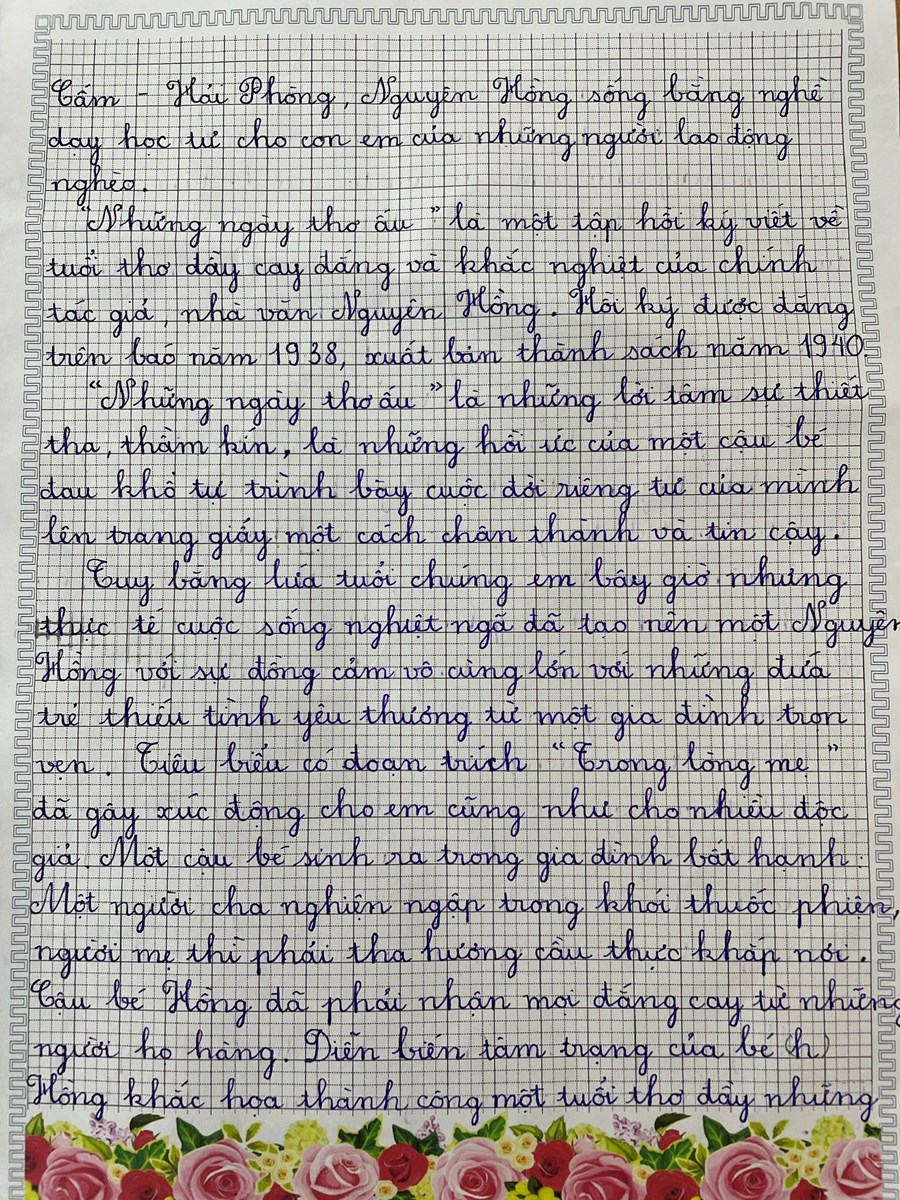 Cấm - Hải Phòng, Nguyên Hồng sống bằng nghề
dạy học tư cho con em của những người lao động
nghèo.
"Những ngày thơ ấu" là một tập hồi ký viết về
tuổi thơ đầy cay đắng và khắc nghiệt của chính
tác giả, nhà văn Nguyên Hồng. Hồi ký được đăng
trên báo năm 1938, xuất bản thành sách năm 1940.
"Những ngày thơ ấu" là những lời tâm sự thiết
tha, thầm kín, là những hồi ức của một cậu bé
đau khổ tự trình bày cuộc đời riêng tư của mình
lên trang giấy một cách chân thành và tin cậy.
Tuy bằng lứa tuổi chúng em bây giờ nhưng
thực tế cuộc sống nghiệt ngã đã tạo nên một Nguyên
Hồng với sự đồng cảm vô cùng lớn với những đứa
trẻ thiếu tình yêu thương từ một gia đình trọn
vẹn. Tiêu biểu có đoạn trích "Trong lòng mẹ"
đã gây xúc động cho em cũng như cho nhiều độc
giả. Một cậu bé sinh ra trong gia đình bất hạnh:
Một người cha nghiện ngập trong khói thuốc phiện,
người mẹ thì phải tha hương cầu thực khắp nơi.
Cậu bé Hồng đã phải nhận mọi đắng cay từ những
người họ hàng. Diễn biến tâm trạng của bé (h)
Hồng khắc họa thành công một tuổi thơ đầy những